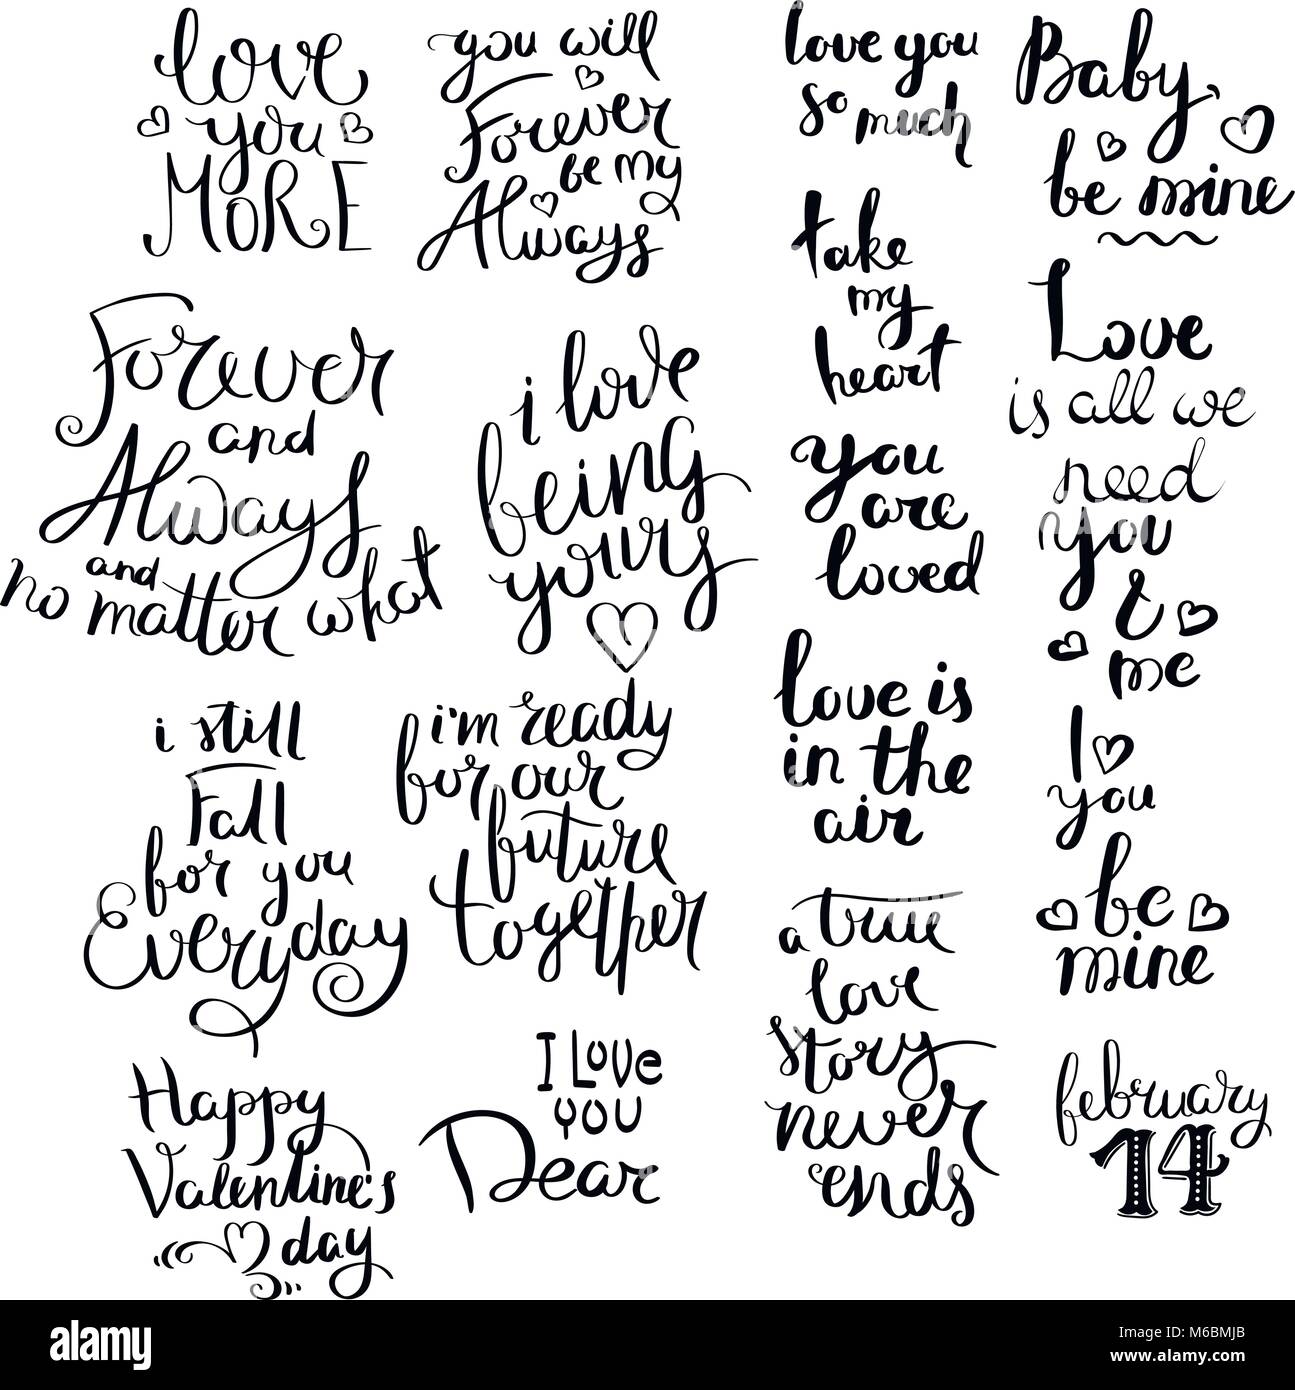 love
you
MORE
you will
Forever
be my
Always
love you
so much
Baby,
be mine
take
my
heart
Forever
and
Always
and
no matter what
i love
being
yours
you
are
loved
Love
is all we
need
you
&
me
i still
Fall
for you
Everyday
i'm ready
for our
future
together
love is
in the
air
I
you
be
mine
a true
love
story
never
ends
Happy
Valentine's
day
I Love
you
Dear
february
14
alamy
Image ID: M6BMJB
www.alamy.com